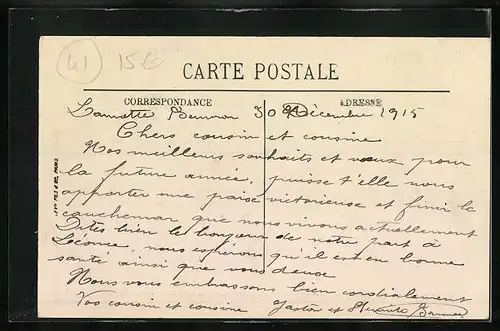 41 15€
CARTE POSTALE
CORRESPONDANCE ADRESSE
Lamotte Beuvron 30 Décembre 1915
Chers cousin et cousine
Nos meilleurs souhaits et vœux pour
la future année, puisse t'elle nous
apporter une paise victorieuse et finir le
cauchemar que nous vivons actuellement
Dites bien le bonjour de notre part à
Léonce, nous espérons qu'il est en bonne
santé ainsi que vous deux
Nous vous embrassons bien cordialement
Vos cousin et cousine Gaston et